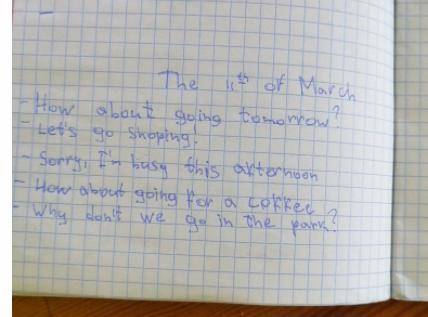 The 11th of March
- How about going tomorrow?
- Let's go shoping!
- Sorry, I'm busy this afternoon
- How about going for a coffee
- Why don't we go in the park?